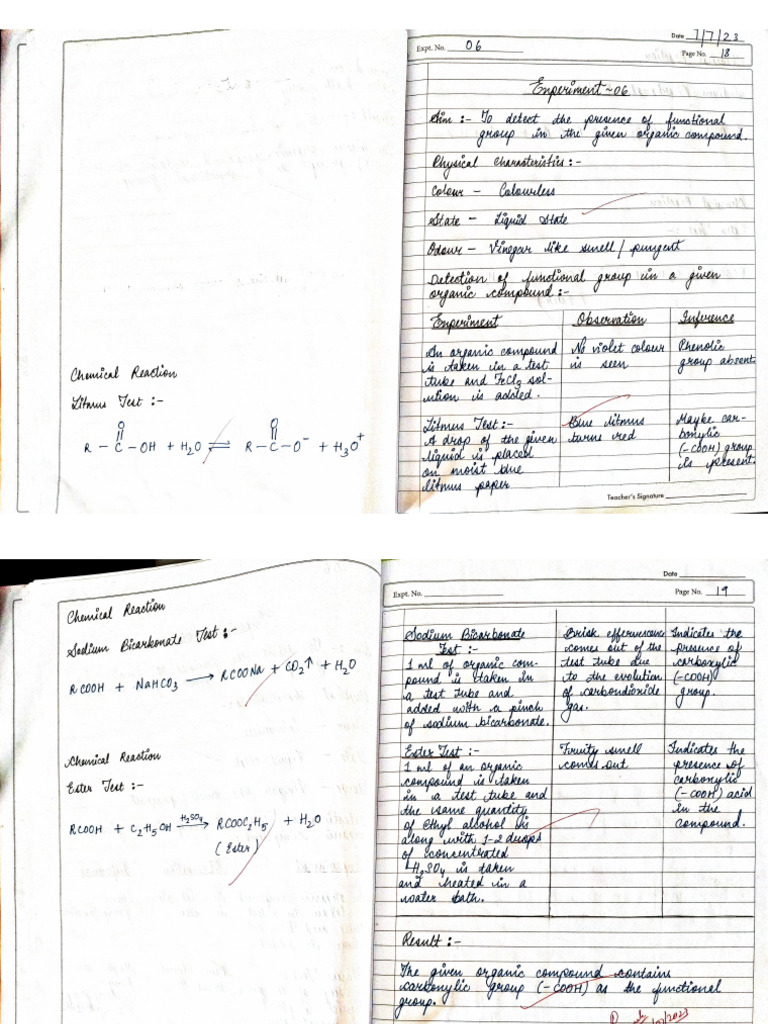 Date 7/7/23
Expt. No. 06
Page No. 18
Experiment ~ 06
Aim :- To detect the presence of functional
group in the given organic compound.
Physical Characteristics :-
Colour - Colourless
State - Liquid State
Odour - Vinegar like smell / pungent
Detection of functional group in a given
organic compound :-
Experiment Observation Inference
An organic compound No violet colour Phenolic
is taken in a test is seen group absent
tube and FeCl3 sol-
ution is added.
Litmus Test :- Blue litmus Maybe car-
A drop of the given turns red bonylic
liquid is placed (-COOH) group
on moist blue is present.
litmus paper
Teacher's Signature
Chemical Reaction
Litmus Test :-
R - C - OH + H2O ⇌ R - C - O⁻ + H3O⁺
O O
Date
Expt. No.
Page No. 19
Sodium Bicarbonate Brisk effervescence Indicates the
Test :- comes out of the presence of
1 ml of organic com- test tube due carboxylic
pound is taken in to the evolution (-COOH)
a test tube and of carbondioxide group.
added with a pinch gas.
of sodium bicarbonate.
Ester Test :- Fruity smell Indicates the
1 ml of an organic comes out presence of
compound is taken carboxylic
in a test tube and (-COOH) acid
the same quantity in the
of Ethyl alcohol is compound.
along with 1-2 drops
of concentrated
H2SO4 is taken
and heated in a
water bath.
Result :-
The given organic compound contains
carboxylic group (-COOH) as the functional
group.
Chemical Reaction
Sodium Bicarbonate Test :-
RCOOH + NaHCO3 ⟶ RCOONa + CO2↑ + H2O
Chemical Reaction
Ester Test :-
RCOOH + C2H5OH ⟶ RCOOC2H5 + H2O
H2SO4
(Ester)